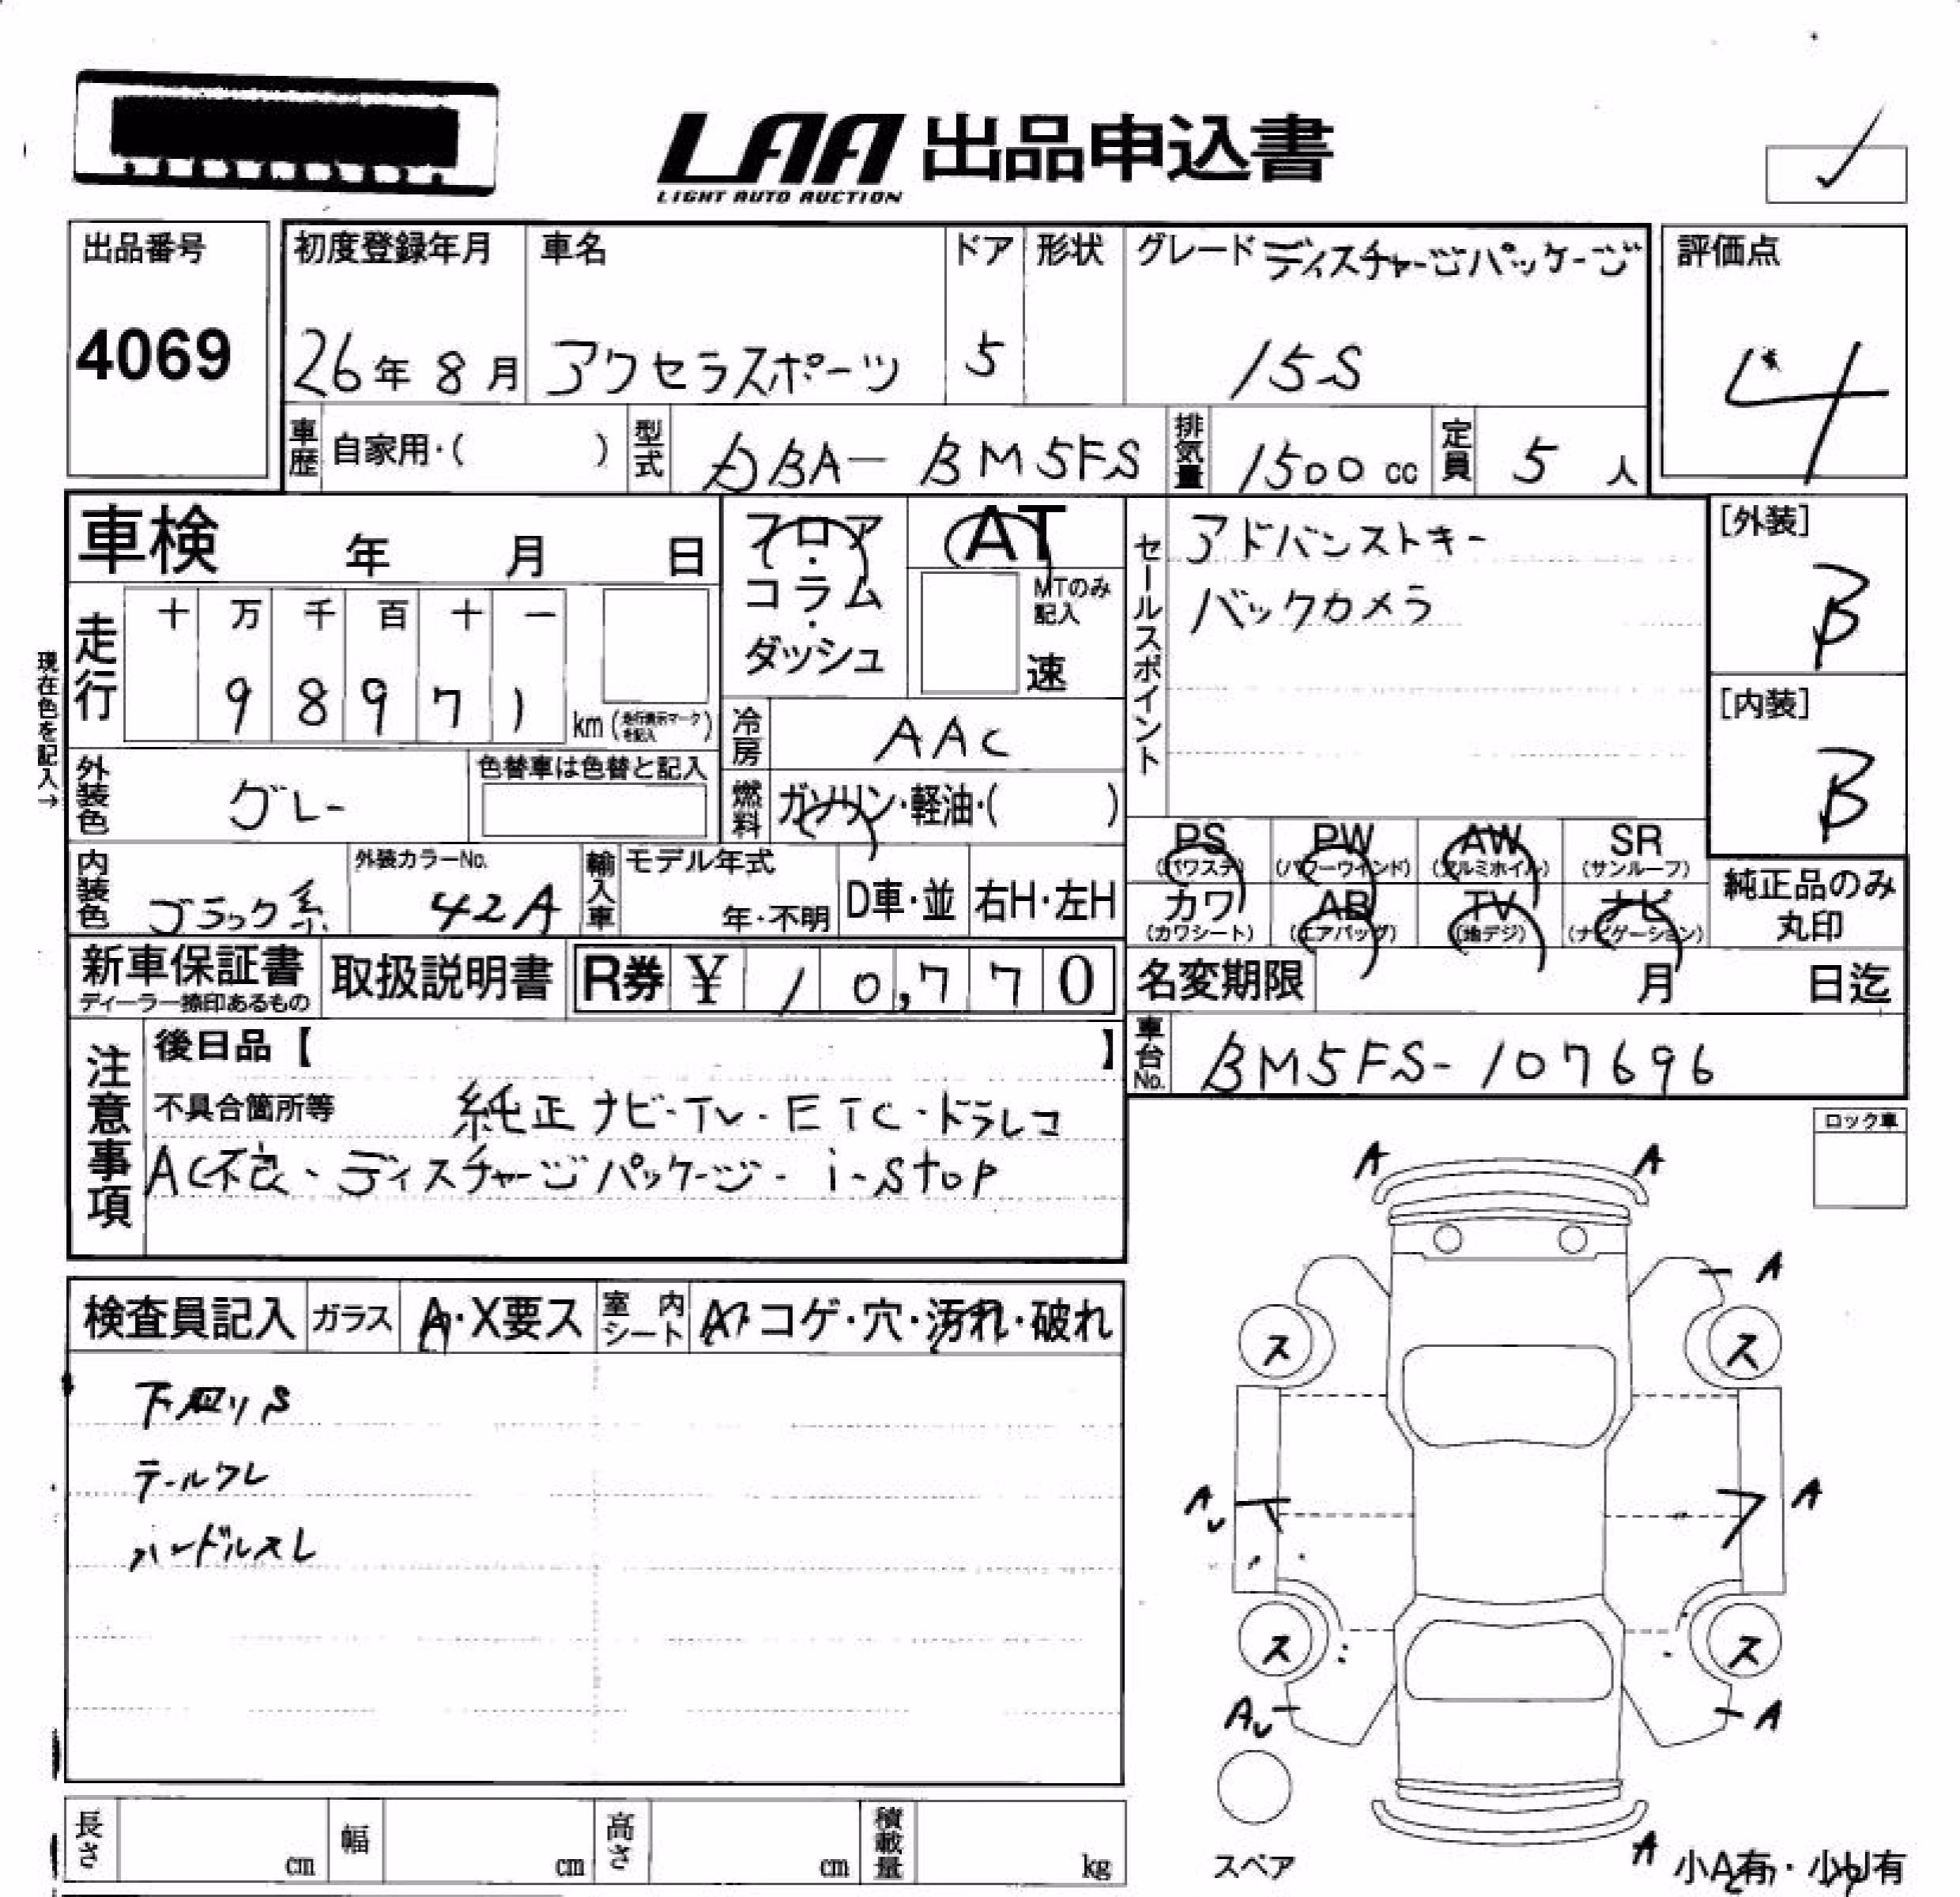 LAA 出品申込書
LIGHT AUTO AUCTION
出品番号
4069
初度登録年月
26年 8月
車名
アクセラスポーツ
ドア
5
形状
グレード ディスチャージパッケージ
15S
評価点
4
車歴 自家用・( )
型式 DBA-BM5FS
排気量 1500 cc
定員 5 人
車検 年 月 日
フロア・コラム・ダッシュ
AT
MTのみ記入
速
セールスポイント
アドバンストキー
バックカメラ
[外装]
B
[内装]
B
現在色を記入→
走行
十 万 千 百 十 一
9 8 9 7 1 km (走行表示マークを記入)
冷房 AAC
燃料 ガソリン・軽油・( )
外装色 グレー
色替車は色替と記入
内装色 ブラック系
外装カラーNo.
42A
輸入車 モデル年式
年・不明
D車・並 右H・左H
PS (パワステ) PW (パワーウインド) AW (アルミホイル) SR (サンルーフ)
カワ (カワシート) AB (エアバッグ) TV (地デジ) ナビ (ナビゲーション)
純正品のみ丸印
新車保証書
ディーラー捺印あるもの
取扱説明書
R券 ¥ 10,770
名変期限 月 日迄
車台No. BM5FS-107696
注意事項
後日品【 】
不具合箇所等 純正ナビ・TV・ETC・ドラレコ
AC不良、ディスチャージパッケージ・i-stop
ロック車
検査員記入 ガラス A・X要ス 室内シート コゲ・穴・汚れ・破れ
下回りS
テールワレ
ハンドルスレ
A A
A
ス ス
AU A
ス ス
AU A
スペア
A 小A有・小U有
長さ cm 幅 cm 高さ cm 積載量 kg